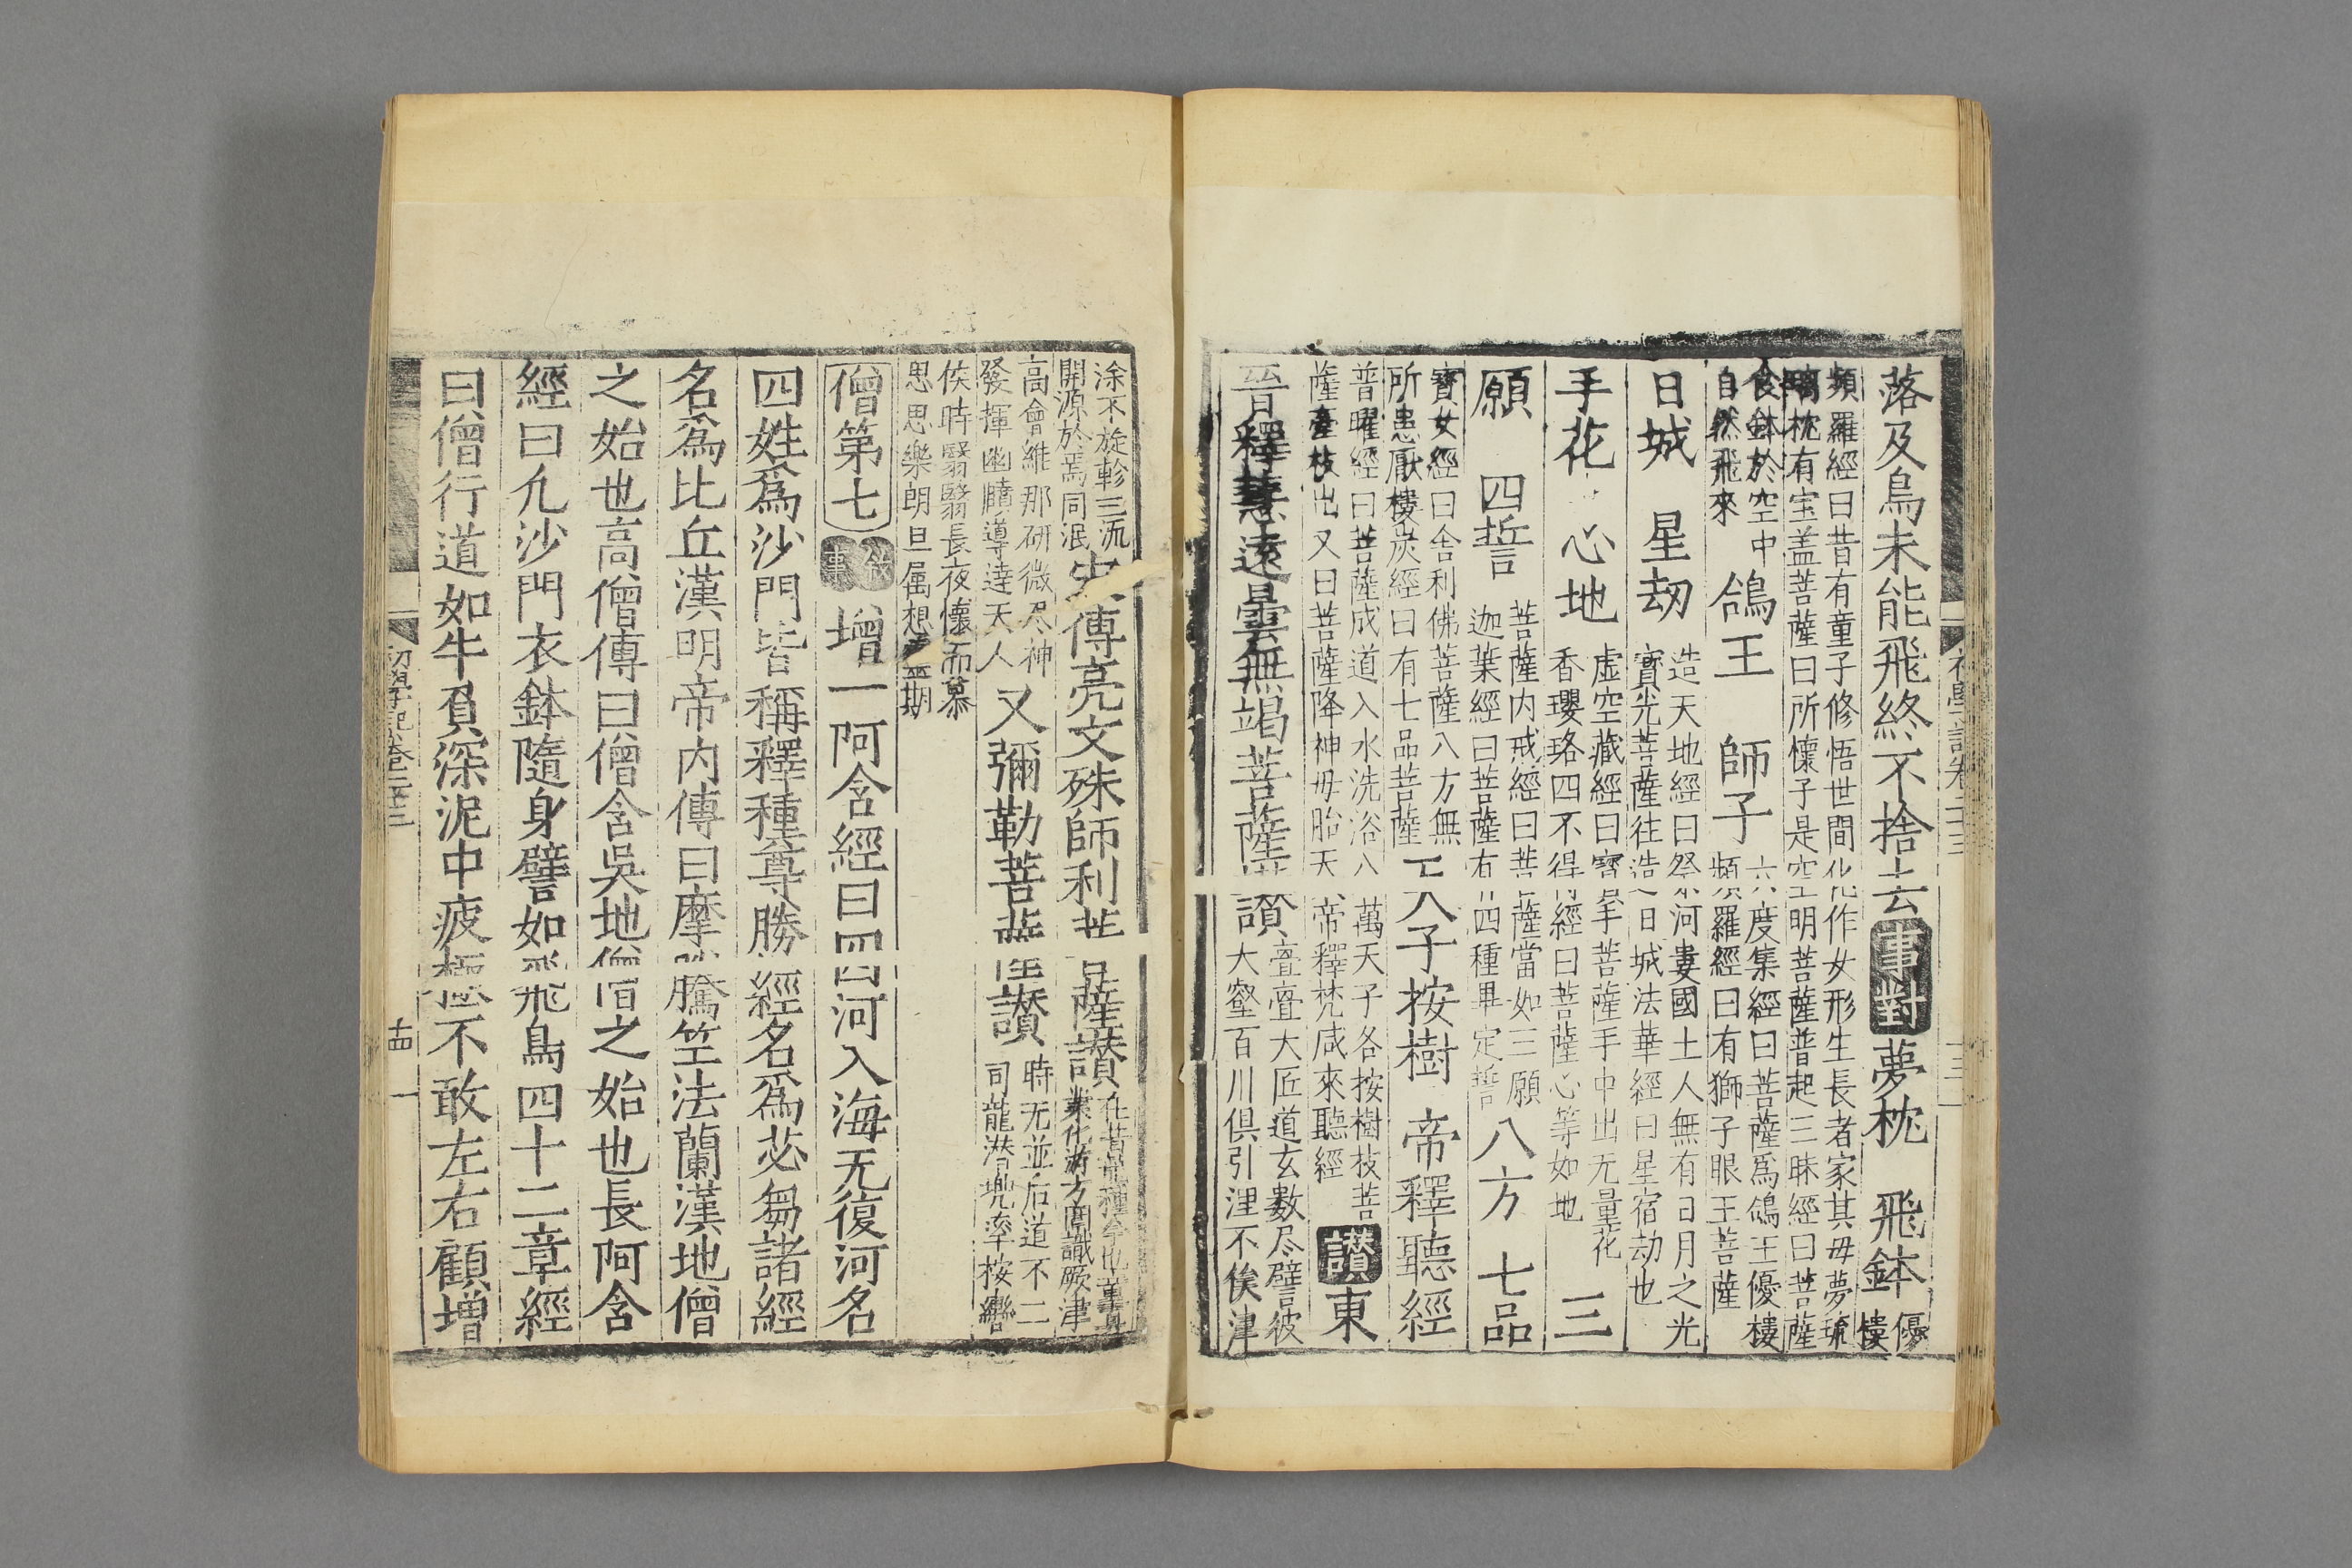 落及鳥未能飛終不捨去事對夢枕　飛鉢優樓
頻羅經曰昔有童子修悟世間化作女形生長者家其毋夢琉
璃枕有宝盖菩薩曰所懷子是空明菩薩普起三昧經曰菩薩
食鉢於空中
自然飛來
鴿王　師子
六度集經曰菩薩為鴿王優樓
頻羅經曰有獅子眼王菩薩
日城　星劫
造天地經曰祭河妻國土人無有日月之光
寶光菩薩往造日城法華經曰星宿劫也
手花　心地
虛空藏經曰寶手菩薩手中出无量花
香瓔珞四不得經曰菩薩心等如地
三
願　四誓
菩薩内戒經曰菩薩當如三願
迦葉經曰菩薩有四種畢定誓
八方　七品
寶女經曰舍利佛菩薩八方無
所患厭樓炭經曰有七品菩薩
天子按樹　帝釋聽經
普曜經曰菩薩成道入水洗浴八萬天子各按樹枝菩
薩臺枝出又曰菩薩降神毋胎天帝釋梵咸來聽經
讃東
晉釋慧遠曇無竭菩薩讃
亹亹大匠道玄數尽譬彼
大壑百川俱引涅不俟津
涂不旋軫三流
開源於焉同泯
宋傅亮文殊師利菩薩讃
在昔龍種今也童真
業化游方罔識厥津
高會維那研微尽神
發揮幽賾導達天人
又彌勒菩薩讃
時无並后道不二
司龍潜兜率按轡
俟時翳翳長夜懷而慕
思思樂朗旦屬想期
僧第七敘事增一阿含經曰四河入海无復河名
四姓為沙門皆稱釋種尊勝經名為苾芻諸經
名為比丘漢明帝内傳曰摩騰竺法蘭漢地僧
之始也高僧傳曰僧含吳地僧之始也長阿含
經曰凢沙門衣鉢隨身譬如飛鳥四十二章經
曰僧行道如牛負深泥中疲極不敢左右顧增
初學記卷二十三
十四